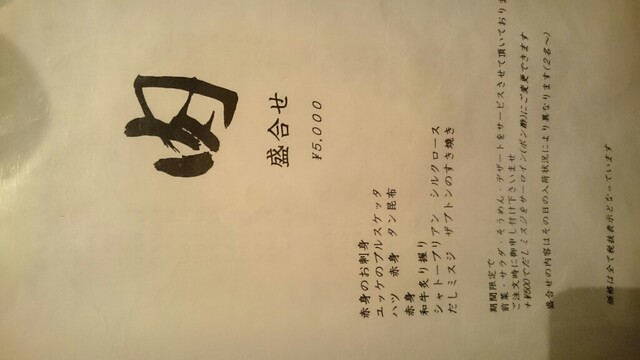 肉
盛合せ
¥5,000
赤身のお刺身
ユッケのブルスケッタ
ハツ 赤身 タン昆布
赤身
和牛炙り握り
シャトーブリアン シルクロース
だしミスジ ザブトンのすき焼き
期間限定で
前菜・サラダ・そうめん・デザートをサービスさせて頂いておりま
ご注文時に御申し付け下さいませ
+¥500でだしミスジをサーロイン(ポン酢)にご変更できます
盛合せの内容はその日の入荷状況により異なります(2名〜)
価格は全て税抜表示となっています